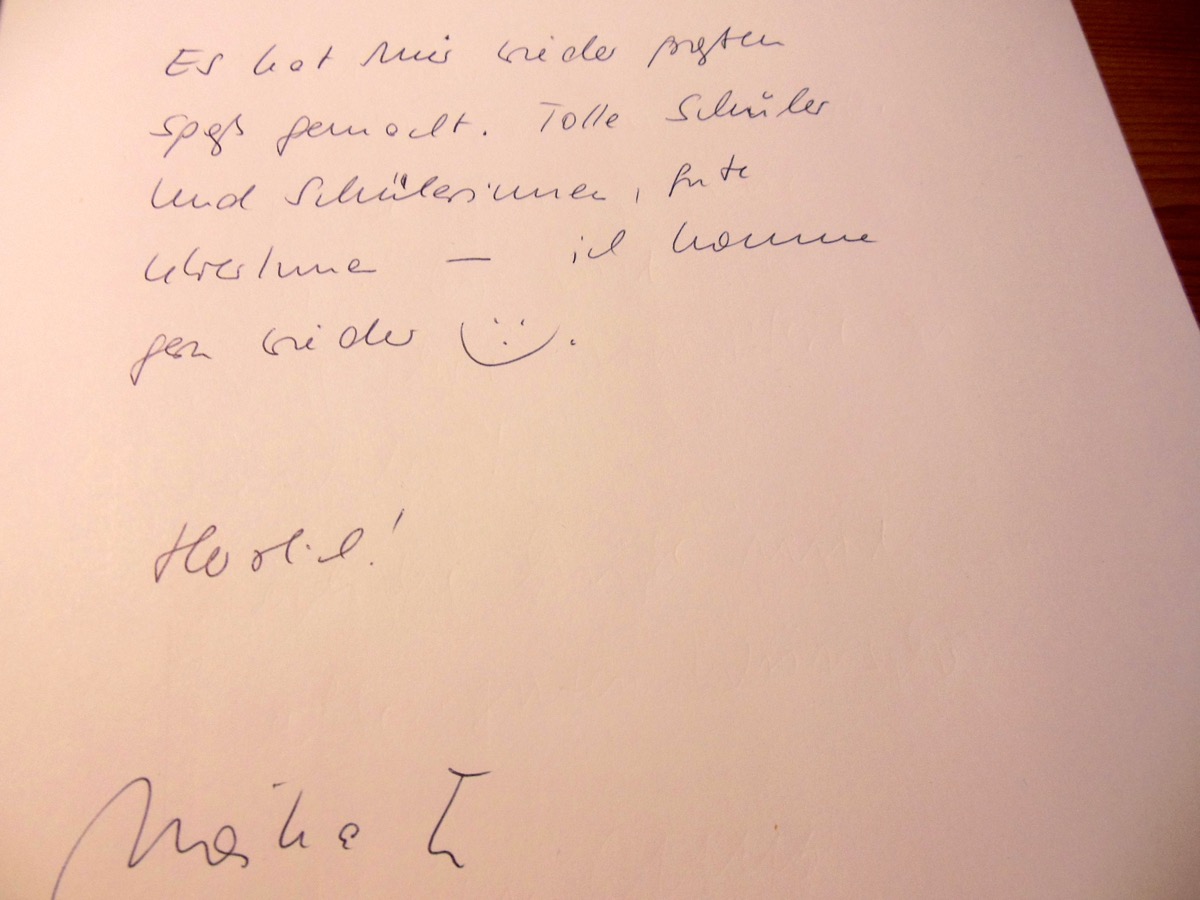 Es hat mir wieder großen
Spaß gemacht. Tolle Schüler
und Schülerinnen, gute
LehrerInnen — ich komme
gern wieder
Herzlich!